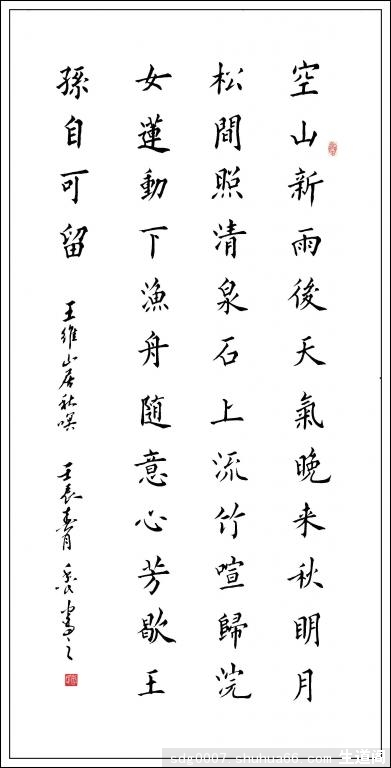 空山新雨後天氣晚来秋明月
松間照清泉石上流竹喧歸浣
女蓮動下漁舟隨意心芳歇王
孫自可留
王維山居秋暝 壬辰春月 書之
cdg0007.shuhua66.com 生道阁